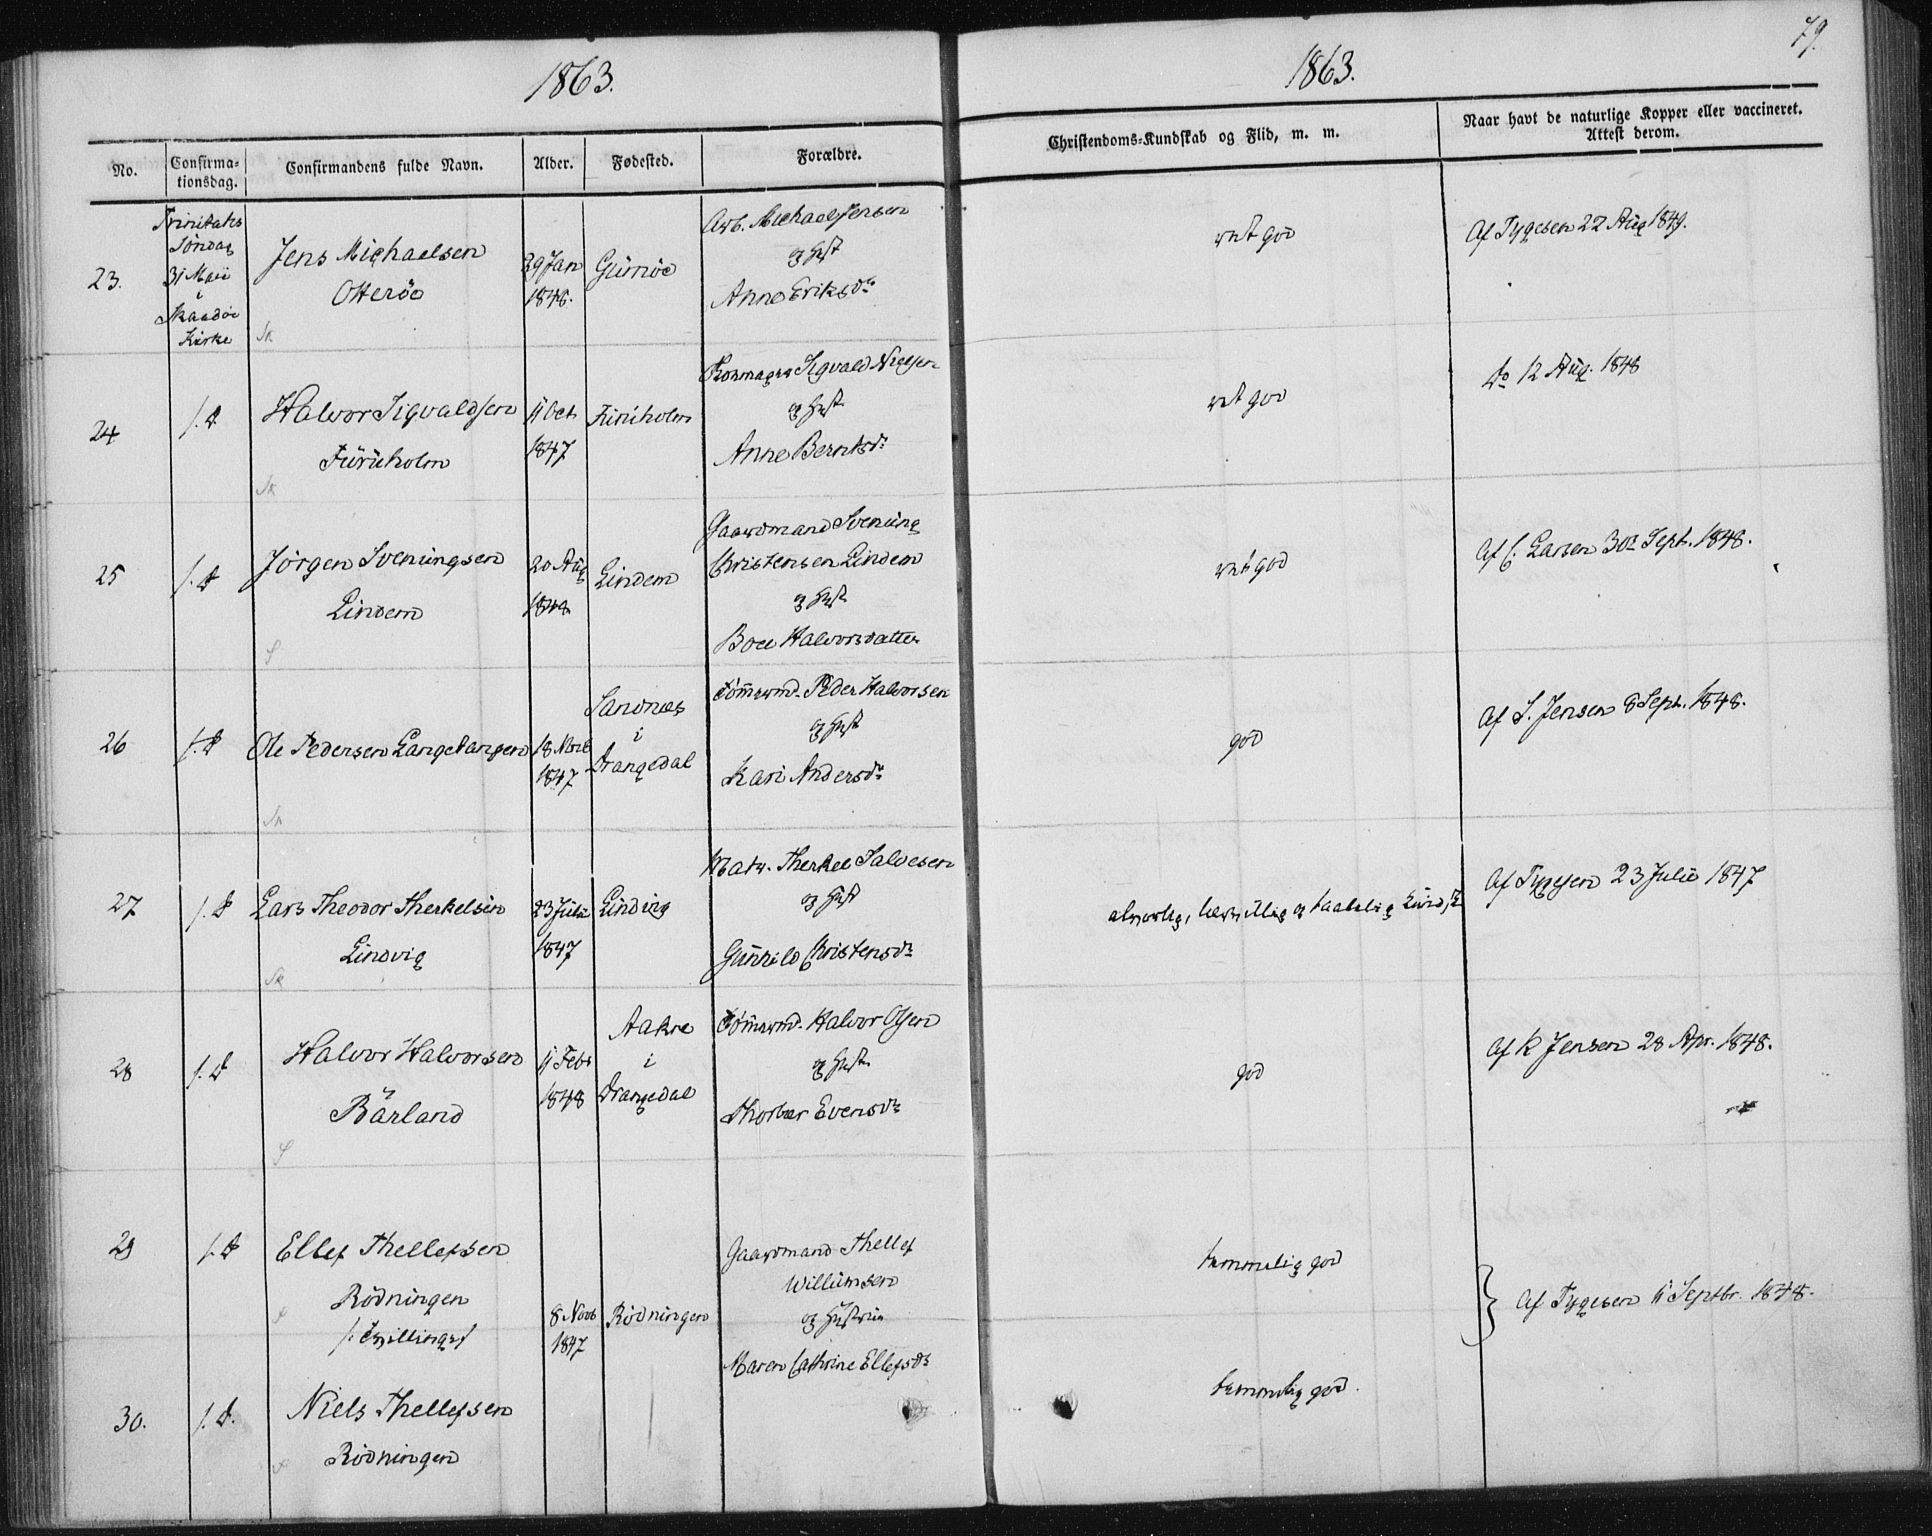 1863.
1863.
79.
No.
Confirma-
tionsdag.
Confirmandens fulde Navn.
Alder.
Fødested.
Forældre.
Christendoms-Kundskab og Flid, m. m.
Naar havt de naturlige Kopper eller vaccineret.
Attest derom.
23.
Trinitatis
Söndag
31 Maii
i
Skaadöe
Kirke
Jens Michaelsen
Otteröe
29 Jan
1848.
Gumöe
Arb. Michael Jensen
og Hust
Anne Eriksdr
god
Af Tygesen 22 Aug 1849.
24
Halvor Sigvaldsen
Furuholm
11 Oct
1847
Furuholm
Sigvald Nielsen
og Hust.
Anne Berntsdr
god
do 12 Aug. 1848
25
Jörgen Sveningsen
Lindem
20 Aug
1848
Lindem
Gaardmand Svenung
Christensen Lindem
og Hust.
Boel Halvorsdatter
god
Af C. Larsen 30e Sept. 1848.
26
Ole Pedersen Langetangen
18 Novb
1847
Sandnæs
i
Drangedal
Tömermd. Peder Halvorsen
og Hust
Kari Andersdr
god
Af S. Jensen 8 Sept. 1848.
27
Lars Theodor Therkelsen
Lindvig
23 Juli
1847
Lindvig
Matr. Therkel Salvesen
og Hust
Gunhild Christensdr
alvorlig, lærvillig og taalelig Kundsk
Af Tygesen 23 Julii 1847
28
Halvor Halvorsen
Bärland
11 Febr
1848
Aakre
i
Drangedal
Tömermd. Halvor Olsen
og Hust.
Thorbør Evensdr
god
Af K Jensen 28 Apr. 1848.
29
Ellef Thellefsen
Rödningen
/: Tvillinger
8 Novb
1847
Rödningen
Gaardmand Thellef
Willumsen
og Hustrue
Maren Cathrine Ellefsdr
temmelig god
Af Tygesen 11 Septbr. 1848.
30.
Niels Thellefsen
Rödningen
temmelig god.